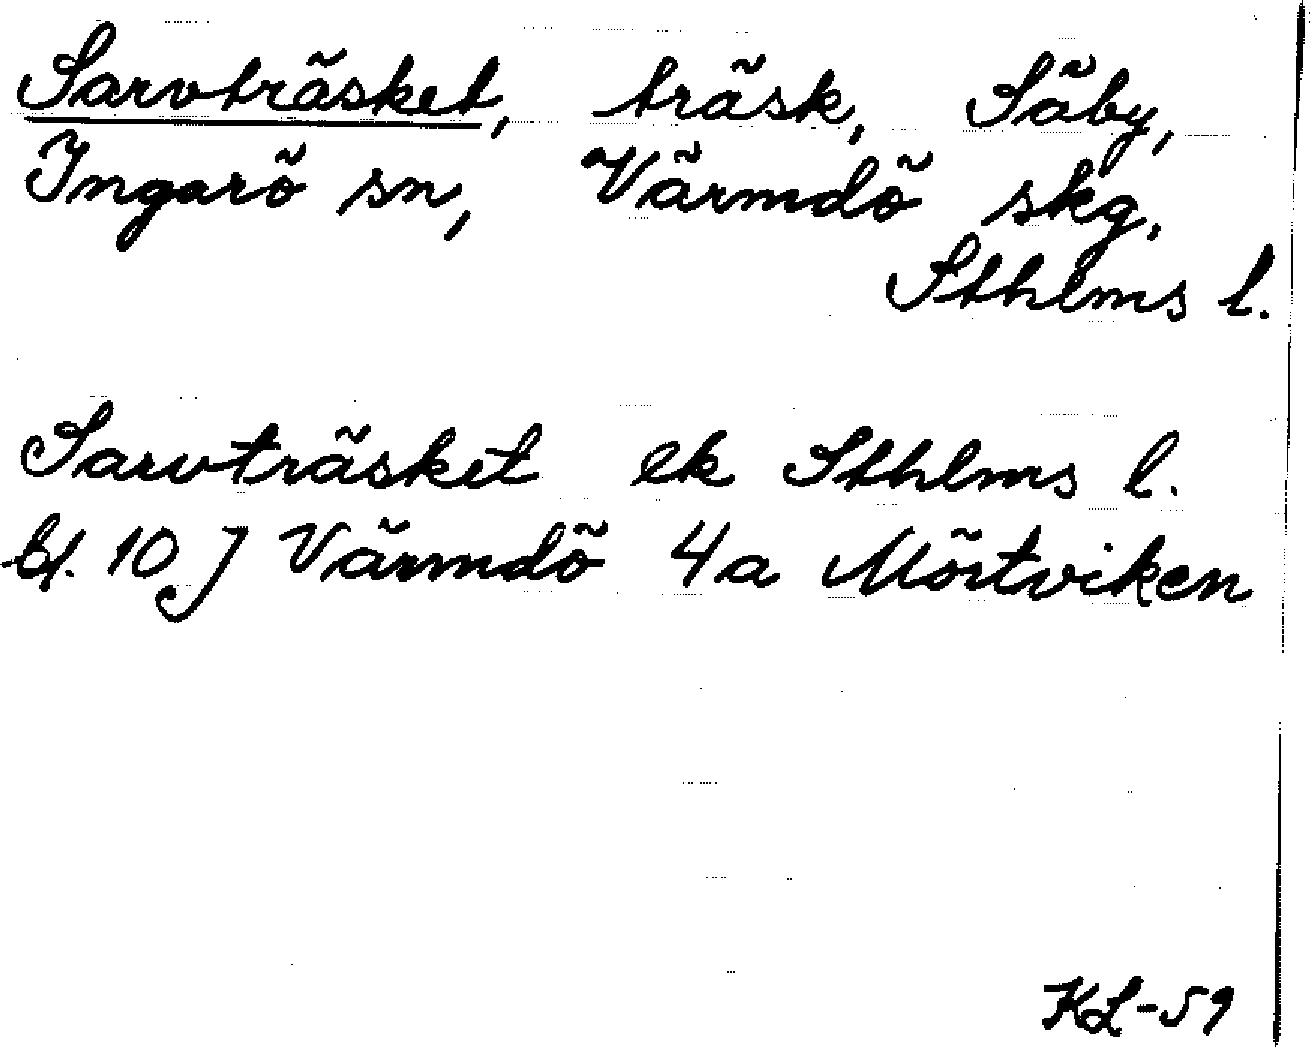 Sarvträsket, träsk, Säby,
Ingarö sn, Värmdö skg,
Sthlms l.
Sarvträsket ek Sthlms l.
bl. 10 J Värmdö 4a Mörtviken
KL-59